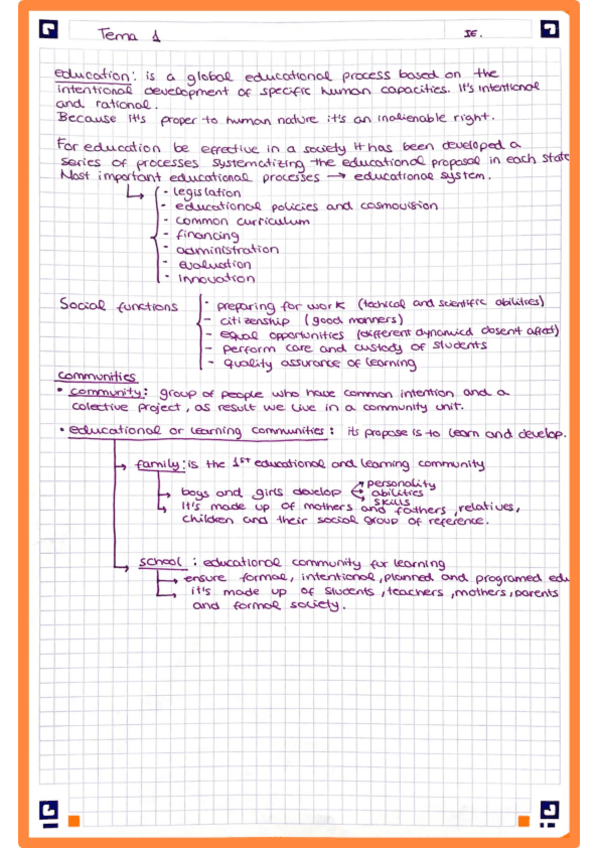 Tema 1
IE.
education: is a global educational process based on the
intentional development of specific human capacities. It's intentional
and rational.
Because it's proper to human nature it's an inalienable right.
For education be effective in a society it has been developed a
series of processes systematizing the educational proposal in each state
Most important educational processes → educational system.
- legislation
- educational policies and cosmovision
- common curriculum
- financing
- administration
- evaluation
- innovation
Social functions
- preparing for work (techical and scientific abilities)
- citizenship (good manners)
- equal opportunities (different dynamics doesn't affect)
- perform care and custody of students
- quality assurance of learning
communities
• community: group of people who have common intention and a
colective project, as result we live in a community unit.
• educational or learning communities: its propose is to learn and develop.
family: is the 1st educational and learning community
boys and girls develop
personality
abilities
skills
It's made up of mothers and fathers, relatives,
children and their social group of reference.
school: educational community for learning
ensure formal, intentional, planned and programed edu
it's made up of students, teachers, mothers, parents
and formal society.